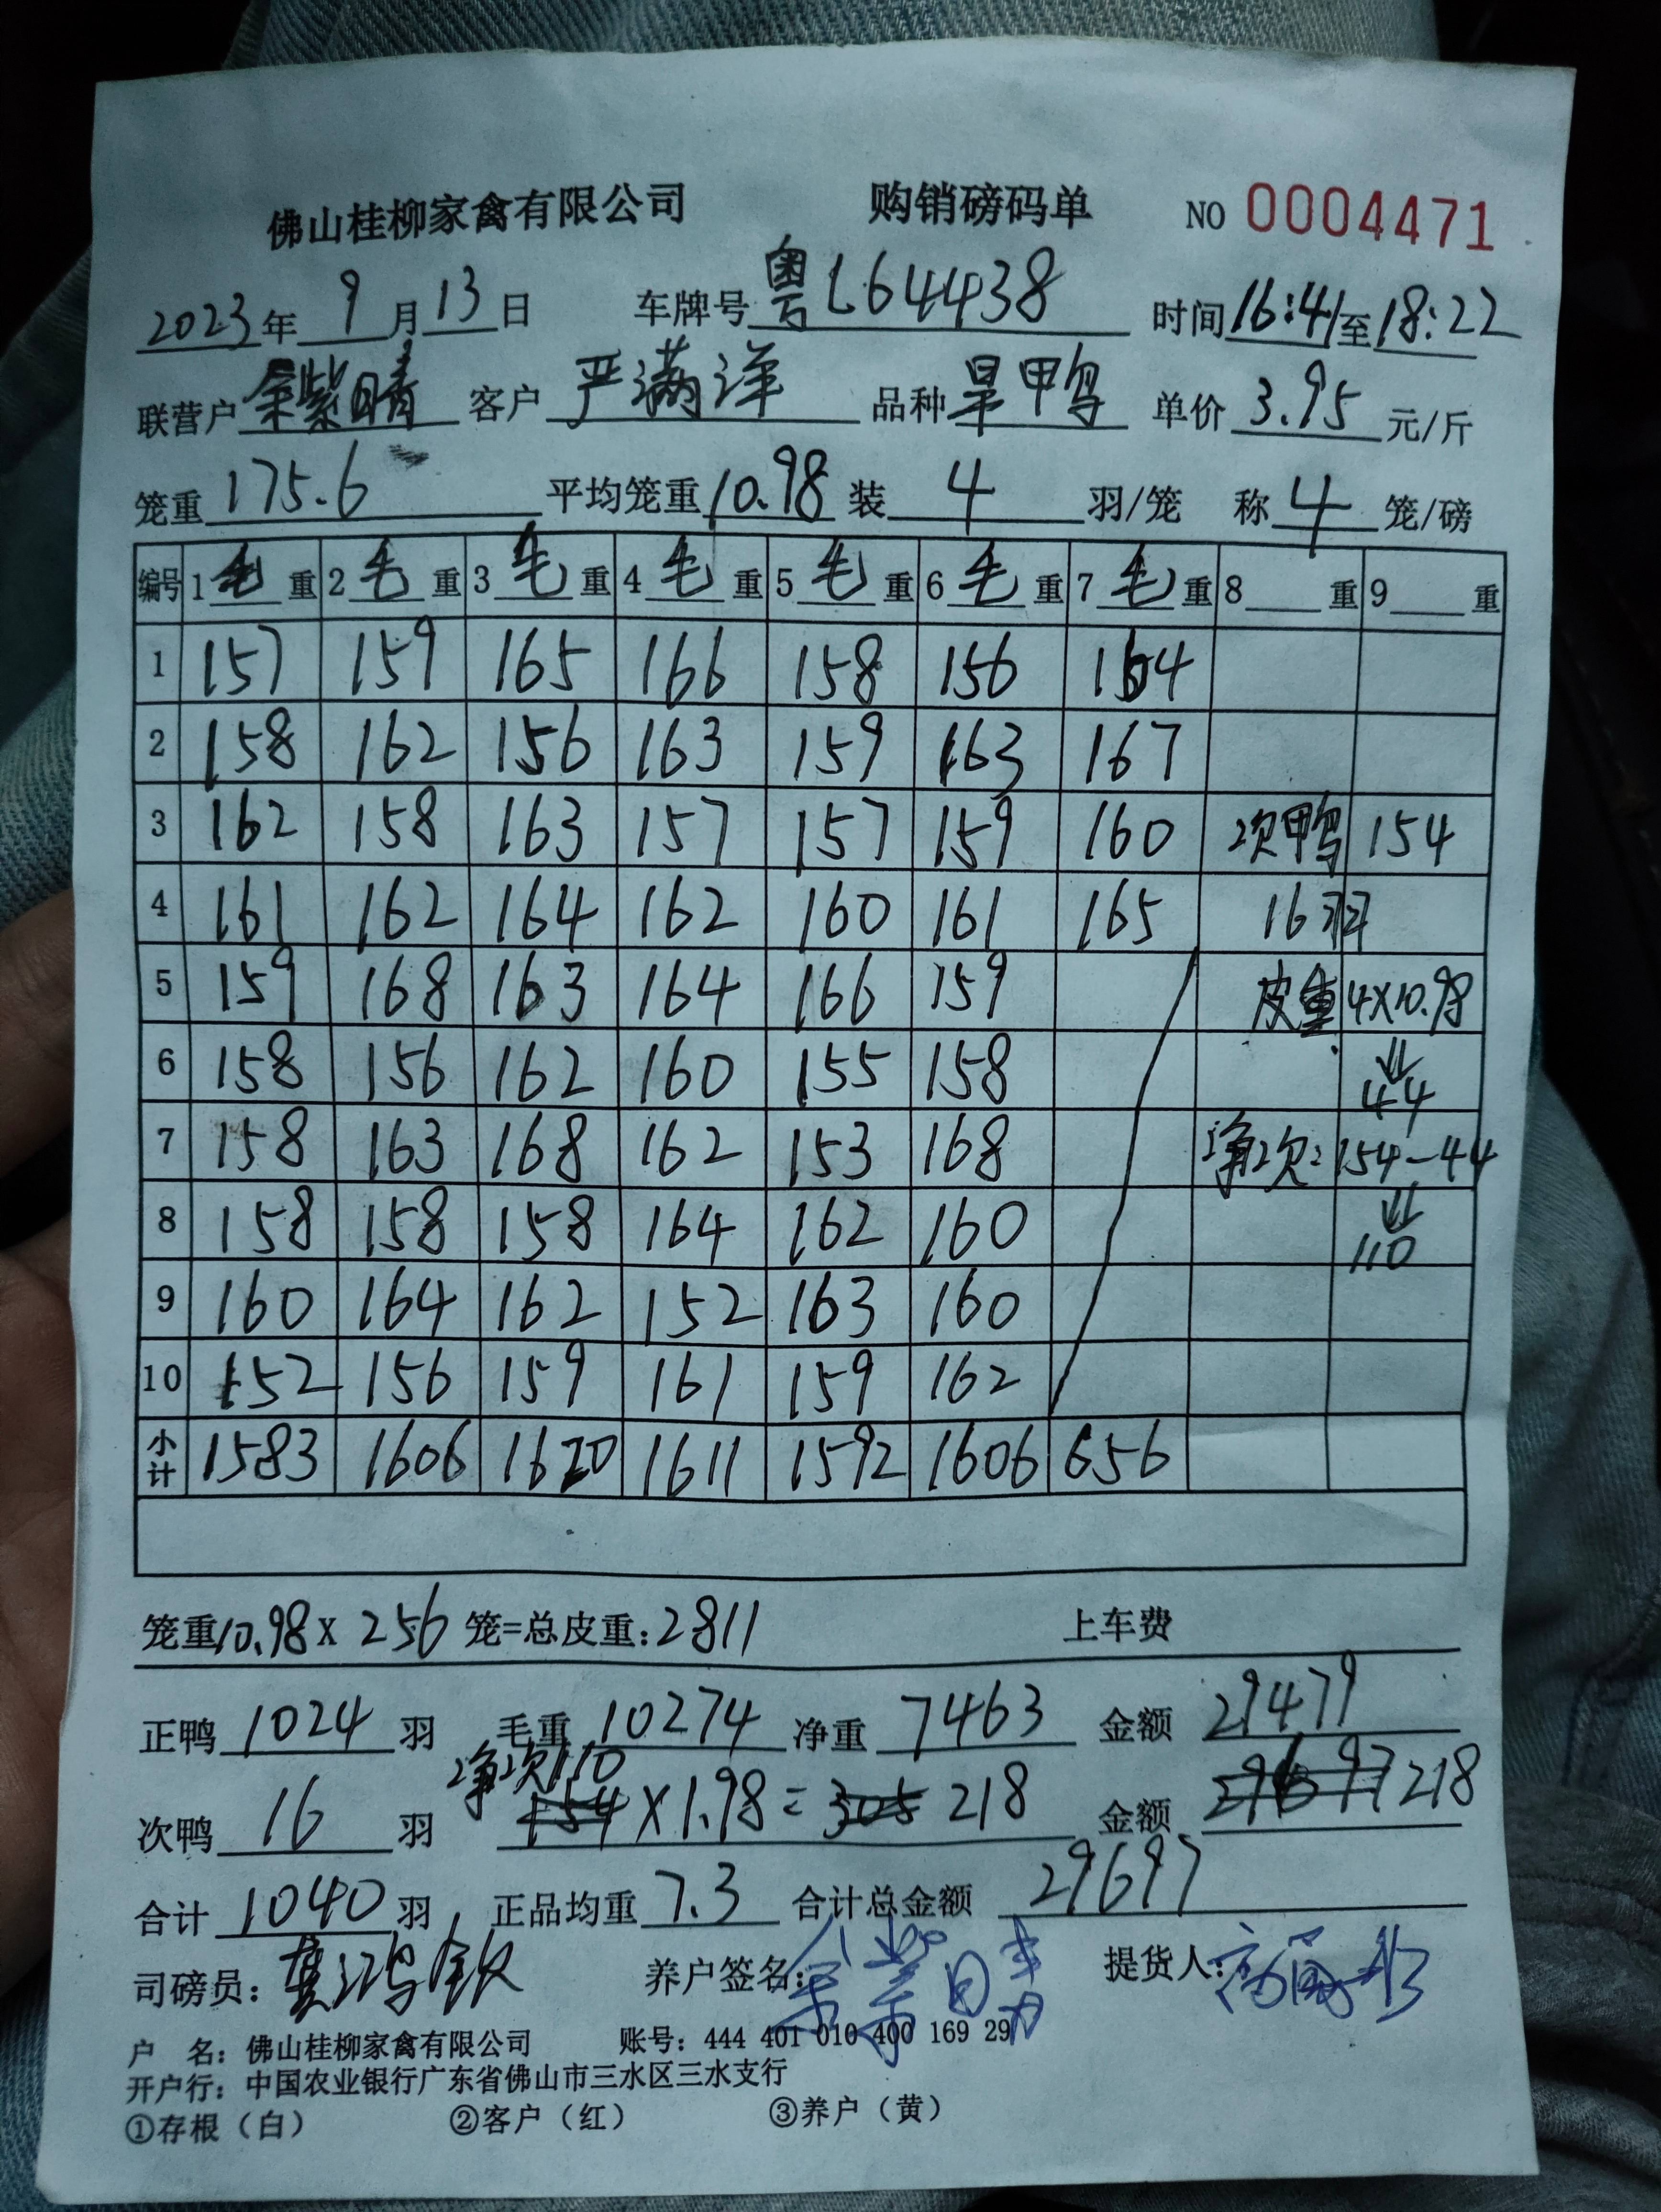 佛山桂柳家禽有限公司 购销磅码单 NO 0004471
2023年 9月13日 车牌号 粤L64438 时间16:41至18:22
联营户 余紫晴 客户 严满洋 品种 旱鸭 单价 3.95 元/斤
笼重 175.6 平均笼重 10.98 装 4 羽/笼 称 4 笼/磅
编号 1毛重 2毛重 3毛重 4毛重 5毛重 6毛重 7毛重 8 重 9 重
1 157 159 165 166 158 156 164
2 158 162 156 163 159 163 167
3 162 158 163 157 157 159 160 次鸭 154
4 161 162 164 162 160 161 165 16羽
5 159 168 163 164 166 159 皮重 4×10.98
6 158 156 162 160 155 158 ⇓ 44
7 158 163 168 162 153 168 净次: 154-44
8 158 158 158 164 162 160 ⇓ 110
9 160 164 162 152 163 160
10 152 156 159 161 159 162
小计 1583 1606 1620 1611 1592 1606 656
笼重10.98X 256 笼=总皮重:2811 上车费
正鸭 1024 羽 毛重 10274 净重 7463 金额 29479
净次110
次鸭 16 羽 154 ×1.98= 305 218 金额 29697 218
合计 1040 羽 正品均重 7.3 合计总金额 29697
司磅员: 养户签名:余紫晴 提货人:
户 名: 佛山桂柳家禽有限公司 账号: 444 401 010 400 169 29
开户行: 中国农业银行广东省佛山市三水区三水支行
①存根（白） ②客户（红） ③养户（黄）